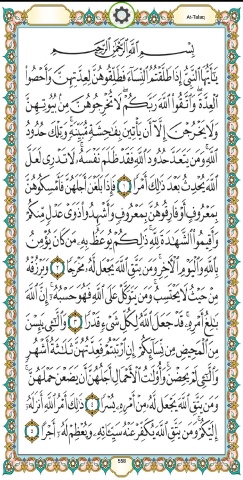 At-Talaq
بِسْمِ اللَّهِ الرَّحْمَٰنِ الرَّحِيمِ
يَٰٓأَيُّهَا ٱلنَّبِىُّ إِذَا طَلَّقْتُمُ ٱلنِّسَآءَ فَطَلِّقُوهُنَّ لِعِدَّتِهِنَّ وَأَحْصُوا۟
ٱلْعِدَّةَ ۖ وَٱتَّقُوا۟ ٱللَّهَ رَبَّكُمْ ۖ لَا تُخْرِجُوهُنَّ مِنۢ بُيُوتِهِنَّ
وَلَا يَخْرُجْنَ إِلَّآ أَن يَأْتِينَ بِفَٰحِشَةٍ مُّبَيِّنَةٍ ۚ وَتِلْكَ حُدُودُ
ٱللَّهِ ۚ وَمَن يَتَعَدَّ حُدُودَ ٱللَّهِ فَقَدْ ظَلَمَ نَفْسَهُۥ ۚ لَا تَدْرِى لَعَلَّ
ٱللَّهَ يُحْدِثُ بَعْدَ ذَٰلِكَ أَمْرًا ١ فَإِذَا بَلَغْنَ أَجَلَهُنَّ فَأَمْسِكُوهُنَّ
بِمَعْرُوفٍ أَوْ فَارِقُوهُنَّ بِمَعْرُوفٍ وَأَشْهِدُوا۟ ذَوَىْ عَدْلٍ مِّنكُمْ
وَأَقِيمُوا۟ ٱلشَّهَٰدَةَ لِلَّهِ ۚ ذَٰلِكُمْ يُوعَظُ بِهِۦ مَن كَانَ يُؤْمِنُ
بِٱللَّهِ وَٱلْيَوْمِ ٱلْءَاخِرِ ۚ وَمَن يَتَّقِ ٱللَّهَ يَجْعَل لَّهُۥ مَخْرَجًا ٢ وَيَرْزُقْهُ
مِنْ حَيْثُ لَا يَحْتَسِبُ ۚ وَمَن يَتَوَكَّلْ عَلَى ٱللَّهِ فَهُوَ حَسْبُهُۥٓ ۚ إِنَّ ٱللَّهَ
بَٰلِغُ أَمْرِهِۦ ۚ قَدْ جَعَلَ ٱللَّهُ لِكُلِّ شَىْءٍ قَدْرًا ٣ وَٱلَّٰٓـِٔى يَئِسْنَ
مِنَ ٱلْمَحِيضِ مِن نِّسَآئِكُمْ إِنِ ٱرْتَبْتُمْ فَعِدَّتُهُنَّ ثَلَٰثَةُ أَشْهُرٍ
وَٱلَّٰٓـِٔى لَمْ يَحِضْنَ ۚ وَأُو۟لَٰتُ ٱلْأَحْمَالِ أَجَلُهُنَّ أَن يَضَعْنَ حَمْلَهُنَّ ۚ
وَمَن يَتَّقِ ٱللَّهَ يَجْعَل لَّهُۥ مِنْ أَمْرِهِۦ يُسْرًا ٤ ذَٰلِكَ أَمْرُ ٱللَّهِ أَنزَلَهُۥٓ
إِلَيْكُمْ ۚ وَمَن يَتَّقِ ٱللَّهَ يُكَفِّرْ عَنْهُ سَيِّـَٔاتِهِۦ وَيُعْظِمْ لَهُۥٓ أَجْرًا ٥
558